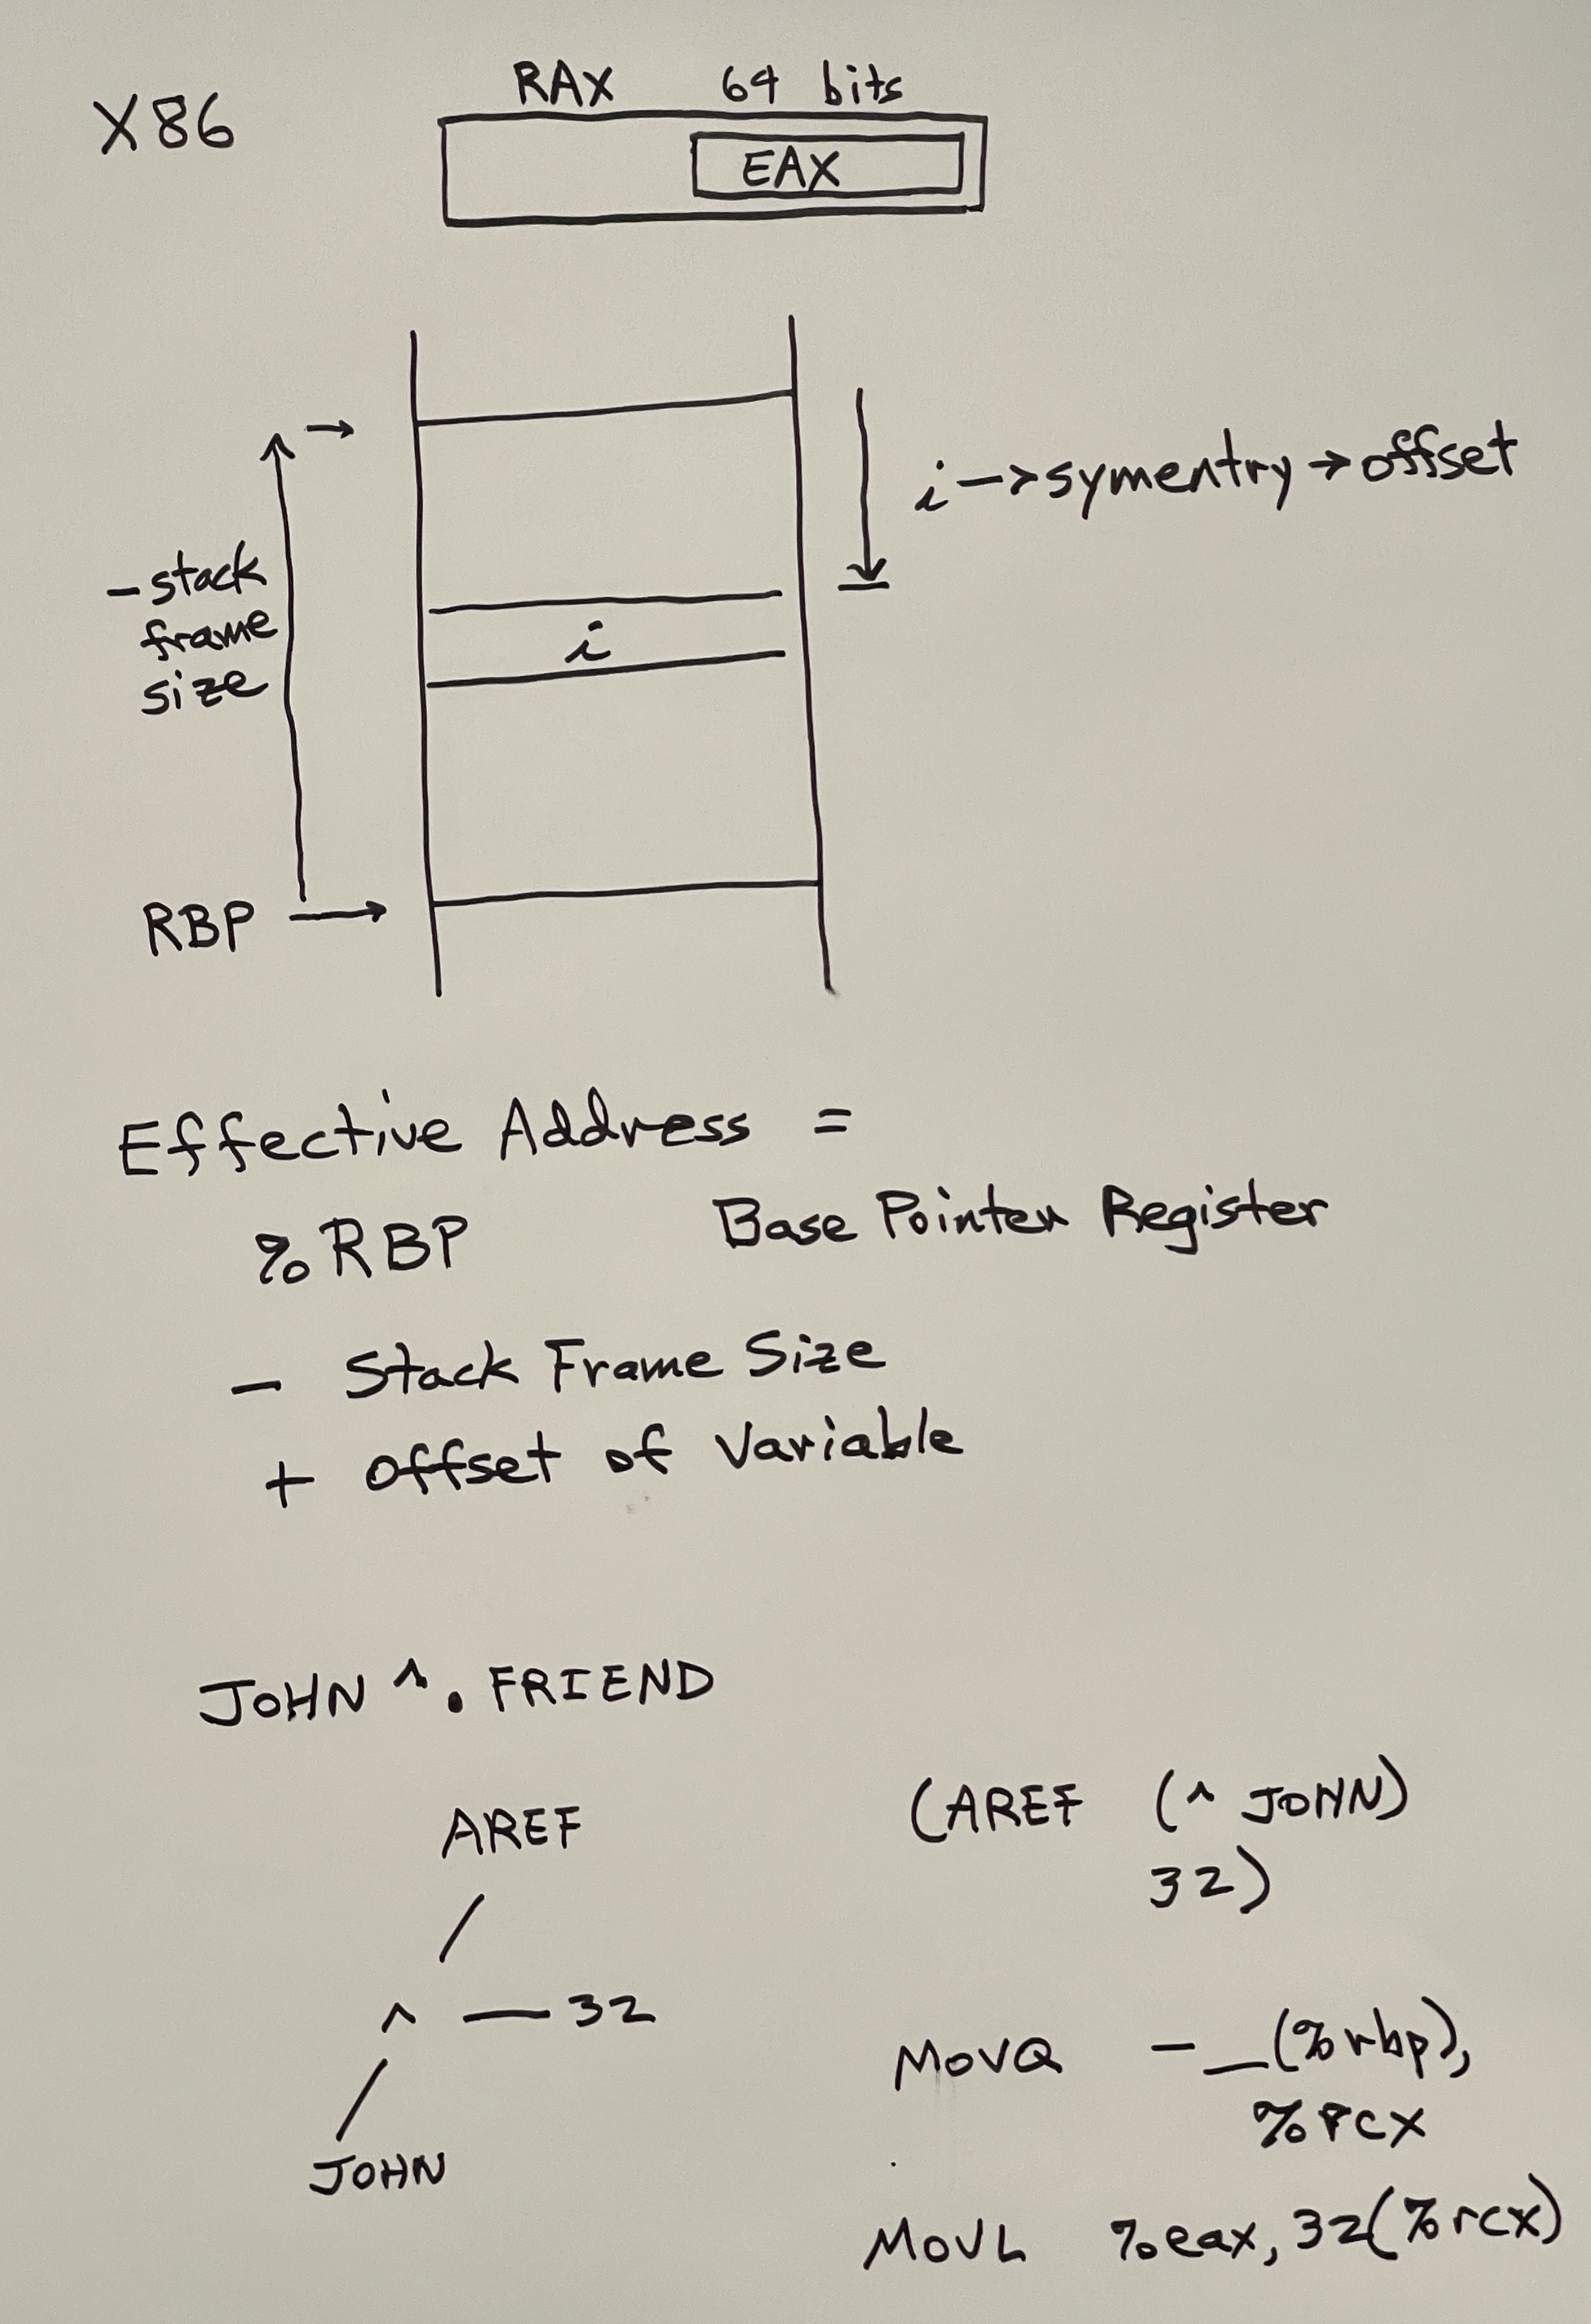 X86
RAX 64 bits
EAX
i -> symentry -> offset
- stack
frame
size
i
RBP
Effective Address =
%RBP Base Pointer Register
- Stack Frame Size
+ offset of Variable
JOHN ^. FRIEND
AREF
(AREF (^ JOHN)
32)
^ — 32
JOHN
MOVQ -__(%rbp),
%rcx
MOVL %eax, 32(%rcx)